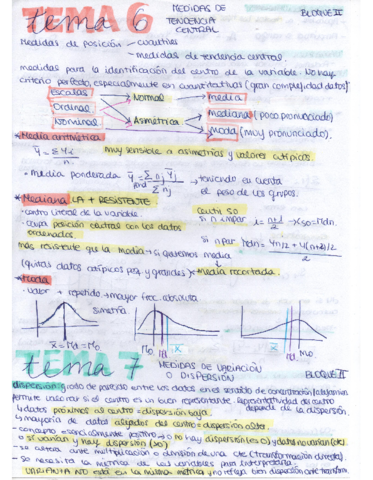 TEMA 6
MEDIDAS DE TENDENCIA CENTRAL
BLOQUE II
Medidas de posición - cuantiles
- medidas de tendencia central.
medidas para la identificación del centro de la variable. No hay
criterio perfecto, especialmente en cuantitativas (gran complejidad datos)
Escalas
Normal
media
Ordinal
Asimétrica
mediana (poco pronunciado)
Nominal
moda (muy pronunciado).
*Media aritmética
muy sensible a asimetrías y valores atípicos
· media ponderada
teniendo en cuenta
el peso de los grupos.
*Mediana LA + RESISTENTE
- centro literal de la variable.
- ocupa posición central con los datos
ordenados.
más resistente que la media → si queremos media
(quitas datos atípicos peq. y grandes) *media recortada.
*Moda
- valor + repetido → mayor frec. absoluta
simetría
TEMA 7
MEDIDAS DE VARIACIÓN
O DISPERSIÓN
BLOQUE II
dispersión: grado de parecido entre los datos en el sentido de concentración/alejamiento
permite valorar si el centro es un buen representante. Representatividad del centro
depende de la dispersión
datos próximos al centro = dispersión baja.
mayoría de datos alejados del centro = dispersión alta.
- concepto esencialmente positivo → o no hay dispersión (=0) y datos no varían (cte).
o sí varían y hay dispersión (>0)
- se altera ante multiplicación o división de una cte (transformación directa).
- se necesita la métrica de las variables para interpretarla.
VARIANZA NO está en la misma métrica